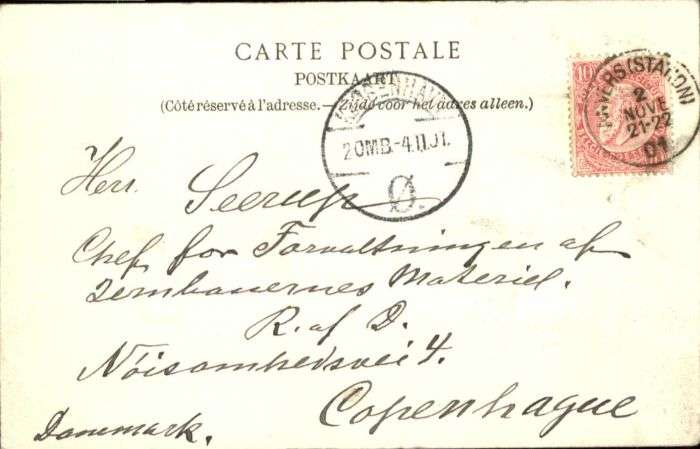 CARTE POSTALE
POSTKAART
(Côté réservé à l'adresse. — Zijde voor het adres alleen.)
10
ANVERS (STATION)
2
NOVE
21-22
01
KJØBENHAVN
2OMB.-4.11.01.
Ø.
Herr. Seerup
Chef for Forvaltningen af
Jernbanernes Materiel.
R. af D.
Nöisomhedsvei 4.
Copenhague
Danemark.